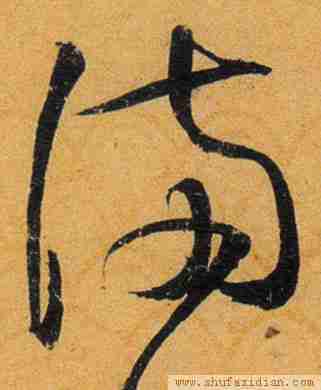 满
www.shufaxidian.com